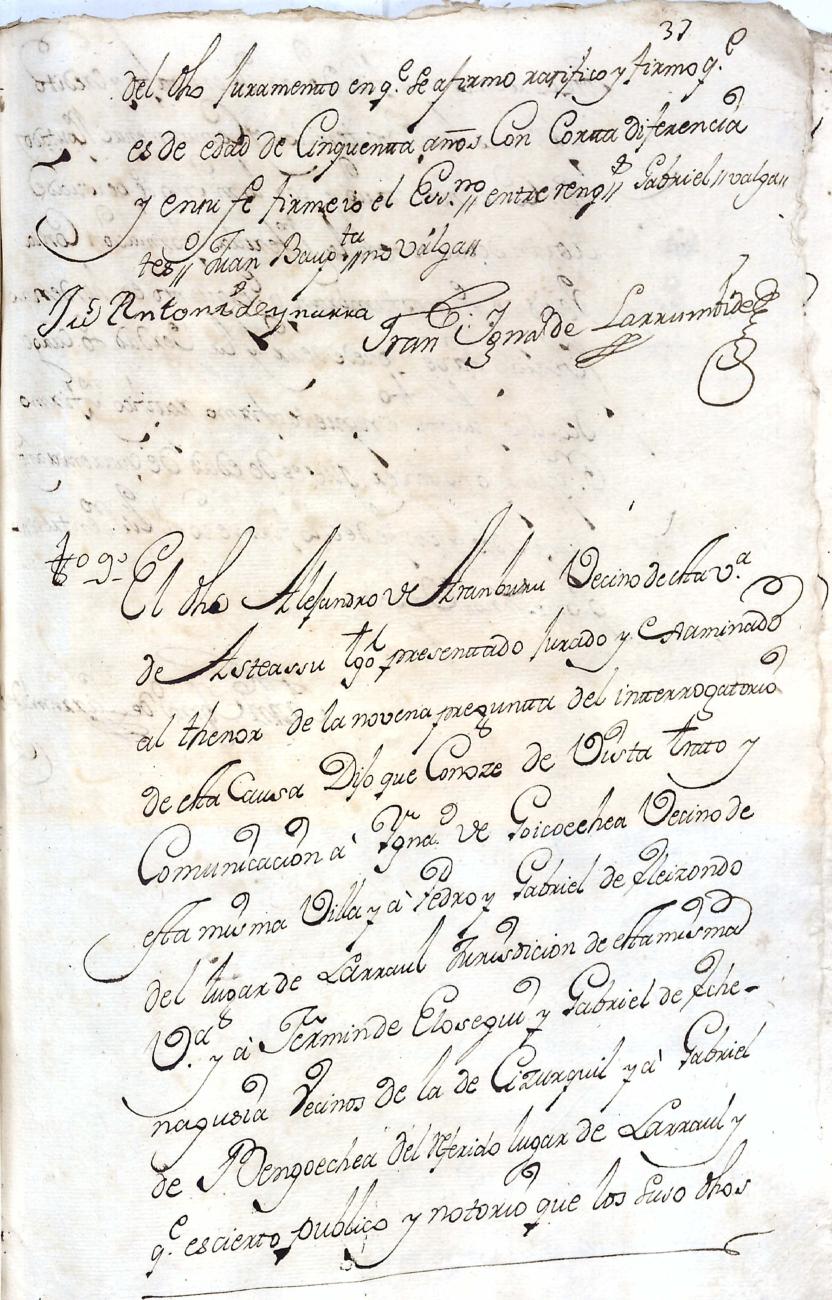 37
del dho Juramento en q.e se afirmo ratifico y firmo q.e
es de edad de Cinquenta años Con Corta diferencia
y en su fe firme io el Ess.no // entre reng.s // Gabriel // valga //
tes // Juan Baup.ta // no valga //
Antonio de ynurra Fran.co Igna.o de Larrumbide
t.o 9.o El dho Alejandro de Aranburu Vecino de esta v.a
de Asteassu tgo presentado Jurado y Examinado
al thenor de la novena pregunta del interrogatorio
de esta Causa Dijo que Conoze de Vista trato y
Comunicacion a Ygna.o de Goicoechea Vecino de
esta misma Villa y à Pedro y Gabriel de Eleizondo
del lugar de Larraul Jurisdicion de esta misma
V.a y à Fermin de Elosegui y Gabriel de Eche-
nagusia Vecinos de la de Cizurquil y à Gabriel
de Bengoechea del referido lugar de Larraul y
q.e es cierto publico y notorio que los suso dhos